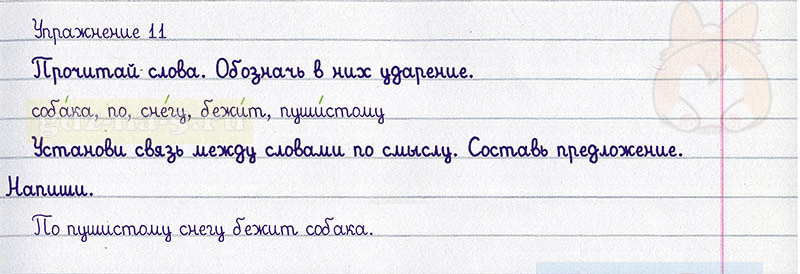 Упражнение 11
Прочитай слова. Обозначь в них ударение.
соба́ка, по, сне́гу, бежи́т, пуши́стому
Установи связь между словами по смыслу. Составь предложение.
Напиши.
По пушистому снегу бежит собака.